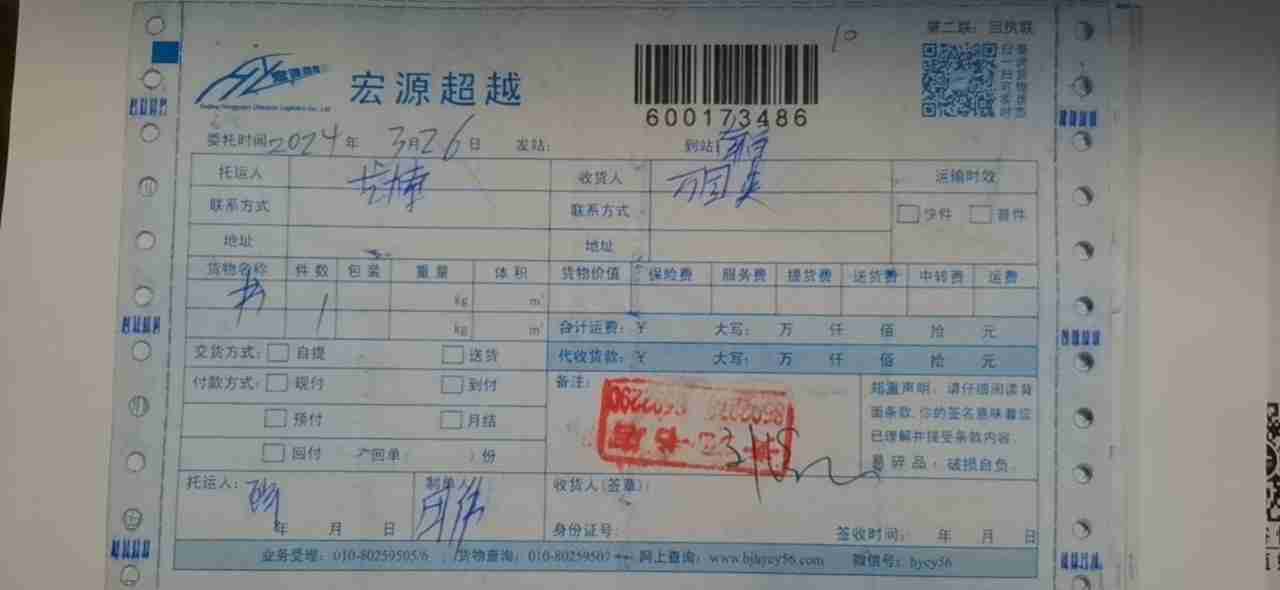 第二联：回执联
10
宏源超越
扫一扫可实时
查询货物状态
600173486
委托时间2024年3月26日 发站： 到站：
托运人 收货人 万国英 运输时效
联系方式 联系方式 快件 普件
地址 地址
货物名称 件数 包装 重量 体积 货物价值 保险费 服务费 提货费 送货费 中转费 运费
书 1 kg m³
kg m³ 合计运费：¥ 大写： 万 仟 佰 拾 元
交货方式： 自提 送货 代收货款：¥ 大写： 万 仟 佰 拾 元
付款方式： 现付 到付 备注： 郑重声明：请仔细阅读背
预付 月结 面条款，你的签名意味着您
已理解并接受条款内容
回付 回单（ ）份 易碎品：破损自负
托运人： 制单人 收货人（签章）：
年 月 日 身份证号： 签收时间： 年 月 日
业务受理：010-80259505/6 ； 货物查询：010-80259507 网上查询：www.bjhycy56.com 微信号：hycy56